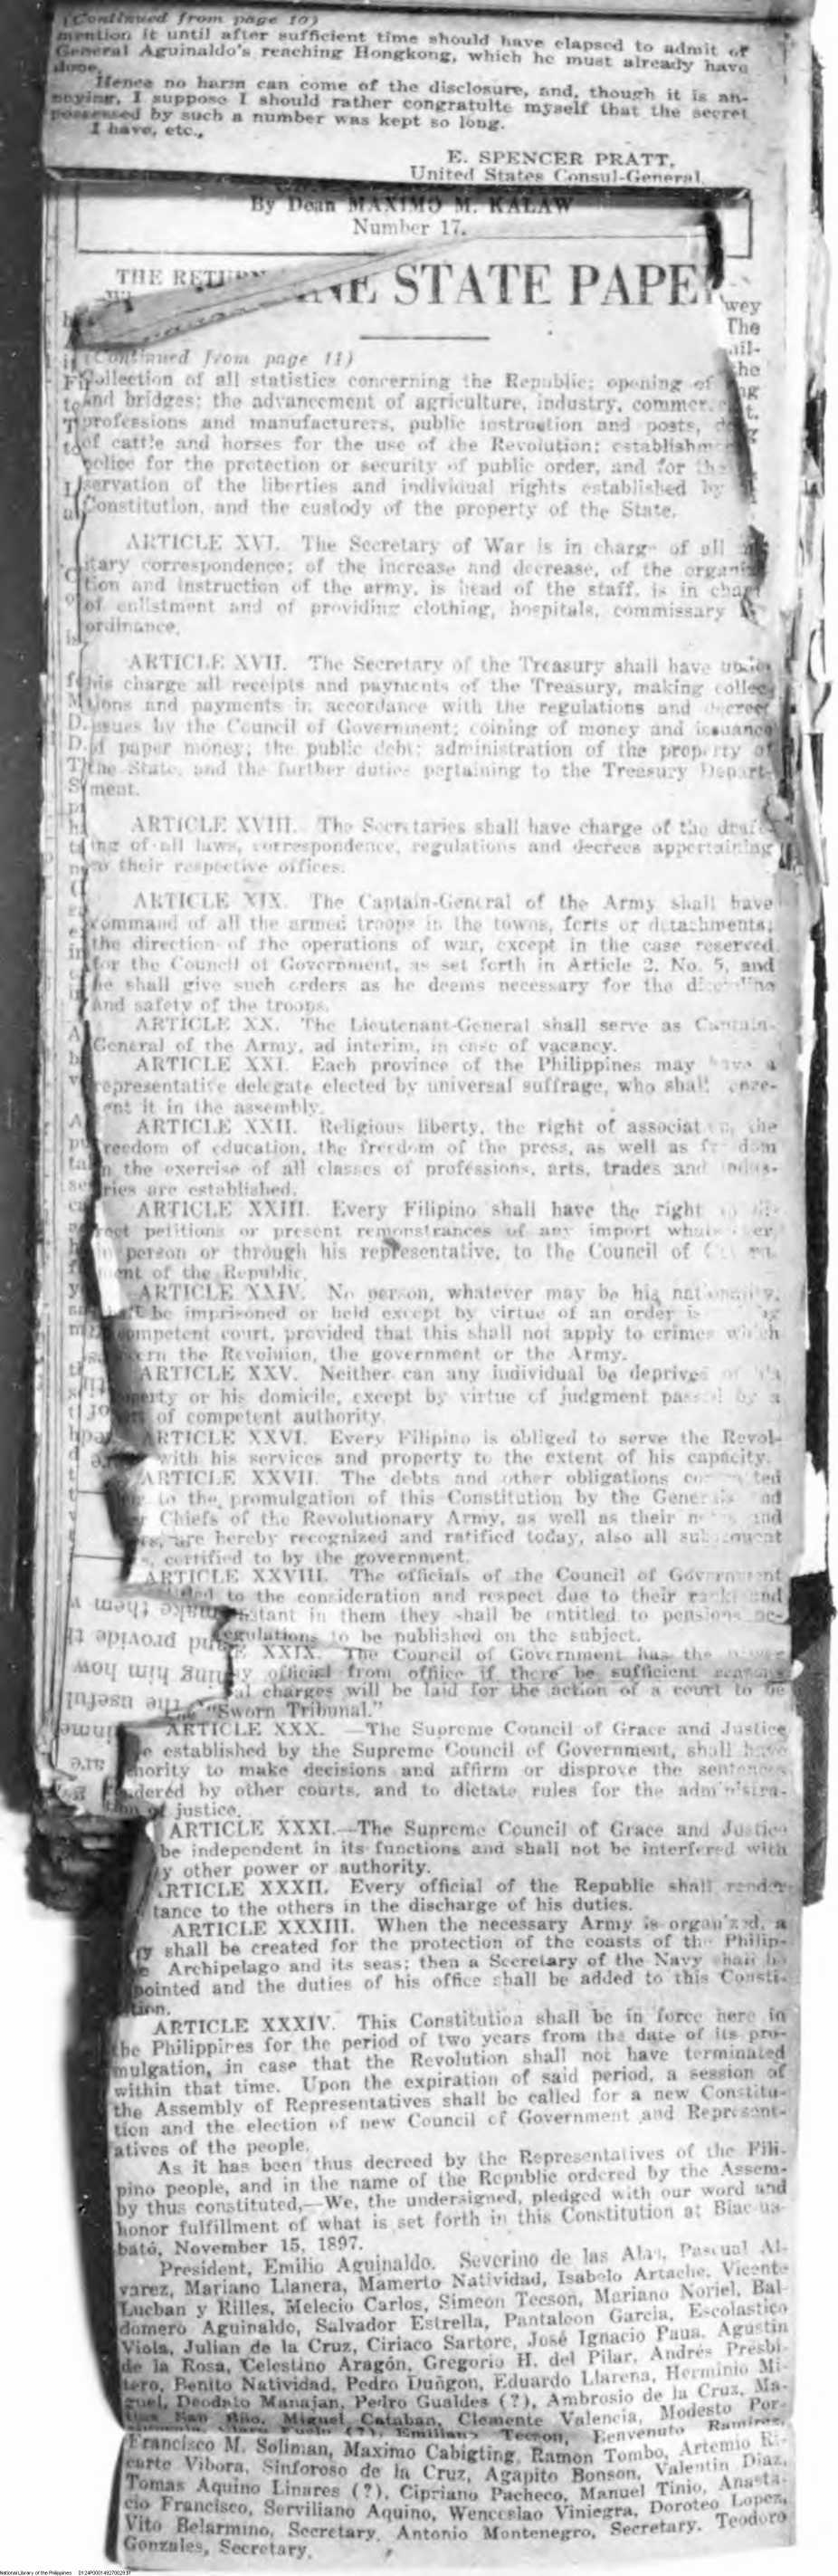 (Continued from page 10)
mention it until after sufficient time should have elapsed to admit of
General Aguinaldo's reaching Hongkong, which he must already have
done.
Hence no harm can come of the disclosure, and, though it is an-
noying, I suppose I should rather congratulte myself that the secret
possessed by such a number was kept so long.
I have, etc.,
E. SPENCER PRATT,
United States Consul-General.
By Dean MAXIMO M. KALAW
Number 17.
THE RETURN
STATE PAPE
wey
The
(Continued from page 11)
ollection of all statistics concerning the Republic; opening of
and bridges; the advancement of agriculture, industry, commer
professions and manufacturers, public instruction and posts,
of cattle and horses for the use of the Revolution; establishm
police for the protection or security of public order, and for the
servation of the liberties and individual rights established by
Constitution, and the custody of the property of the State.
ARTICLE XVI. The Secretary of War is in charge of all
itary correspondence; of the increase and decrease, of the organi
tion and instruction of the army, is head of the staff, is in char
of enlistment and of providing clothing, hospitals, commissary
ordinance.
ARTICLE XVII. The Secretary of the Treasury shall have under
his charge all receipts and payments of the Treasury, making collec-
tions and payments in accordance with the regulations and decrees
issues by the Council of Government; coining of money and issuance
of paper money; the public debt; administration of the property of
the State, and the further duties pertaining to the Treasury Depart-
ment.
ARTICLE XVIII. The Secretaries shall have charge of the draf
ing of all laws, correspondence, regulations and decrees appertaining
to their respective offices.
ARTICLE XIX. The Captain-General of the Army shall have
command of all the armed troops in the towns, forts or detachments;
the direction of the operations of war, except in the case reserved
for the Council of Government, as set forth in Article 2, No. 5, and
he shall give such orders as he deems necessary for the
and safety of the troops.
ARTICLE XX. The Lieutenant-General shall serve as Captain-
General of the Army, ad interim, in case of vacancy.
ARTICLE XXI. Each province of the Philippines may have a
representative delegate elected by universal suffrage, who shall repre-
ent it in the assembly.
ARTICLE XXII. Religious liberty, the right of associat the
reedom of education, the freedom of the press, as well as fr dom
n the exercise of all classes of professions, arts, trades and indus-
ries are established.
ARTICLE XXIII. Every Filipino shall have the right
rect petitions or present remonstrances of any import what er
person or through his representative, to the Council of
ent of the Republic.
ARTICLE XXIV. No person, whatever may be his nationality,
be imprisoned or held except by virtue of an order
ompetent court, provided that this shall not apply to crimes which
cern the Revoluion, the government or the Army.
ARTICLE XXV. Neither can any individual be deprive
perty or his domicile, except by virtue of judgment passed by a
of competent authority.
ARTICLE XXVI. Every Filipino is obliged to serve the Revol-
with his services and property to the extent of his capacity.
ARTICLE XXVII. The debts and other obligations co ted
to the promulgation of this Constitution by the Generals
Chiefs of the Revolutionary Army, as well as their and
are hereby recognized and ratified today, also all
certified to by the government.
ARTICLE XXVIII. The officials of the Council of Government
to the consideration and respect due to their rank and
stant in them they shall be entitled to pensions ac-
egulations to be published on the subject.
XXIX. The Council of Government has the power
y official from office if there be sufficient reasons
al charges will be laid for the action of a court to be
"Sworn Tribunal."
ARTICLE XXX. —The Supreme Council of Grace and Justice
e established by the Supreme Council of Government, shall have
hority to make decisions and affirm or disprove the sentences
dered by other courts, and to dictate rules for the administra-
tion of justice.
ARTICLE XXXI.—The Supreme Council of Grace and Justice
be independent in its functions and shall not be interfered with
y other power or authority.
ARTICLE XXXII. Every official of the Republic shall render
tance to the others in the discharge of his duties.
ARTICLE XXXIII. When the necessary Army is organized, a
y shall be created for the protection of the coasts of the Philip-
Archipelago and its seas; then a Secretary of the Navy shall be
pointed and the duties of his office shall be added to this Consti-
tion.
ARTICLE XXXIV. This Constitution shall be in force here in
the Philippines for the period of two years from the date of its pro-
mulgation, in case that the Revolution shall not have terminated
within that time. Upon the expiration of said period, a session of
the Assembly of Representatives shall be called for a new Constitu-
tion and the election of new Council of Government and Represent-
atives of the people.
As it has been thus decreed by the Representatives of the Fili-
pino people, and in the name of the Republic ordered by the Assem-
by thus constituted,—We, the undersigned, pledged with our word and
honor fulfillment of what is set forth in this Constitution at Biac-na-
bató, November 15, 1897.
President, Emilio Aguinaldo. Severino de las Alas, Pascual Al-
varez, Mariano Llanera, Mamerto Natividad, Isabelo Artache, Vicente
Lucban y Rilles, Melecio Carlos, Simeon Tecson, Mariano Noriel, Bal-
domero Aguinaldo, Salvador Estrella, Pantaleon Garcia, Escolastico
Viola, Julian de la Cruz, Ciriaco Sartore, José Ignacio Paua, Agustin
de la Rosa, Celestino Aragón, Gregorio H. del Pilar, Andrés Presbi-
tero, Benito Natividad, Pedro Duñgon, Eduardo Llarena, Herminio Mi-
guel, Deodato Manajan, Pedro Gualdes (?), Ambrosio de la Cruz, Ma-
tias San Año, Miguel Cataban, Clemente Valencia, Modesto Por-
(?), Emiliano Tecson, Benvenuto Ramirez,
Francisco M. Soliman, Maximo Cabigting, Ramon Tombo, Artemio Ri-
carte Vibora, Sinforoso de la Cruz, Agapito Bonson, Valentin Diaz,
Tomas Aquino Linares (?), Cipriano Pacheco, Manuel Tinio, Anasta-
cio Francisco, Serviliano Aquino, Wenceslao Viniegra, Doroteo Lopez,
Vito Belarmino, Secretary. Antonio Montenegro, Secretary. Teodoro
Gonzales, Secretary.
National Library of the Philippines